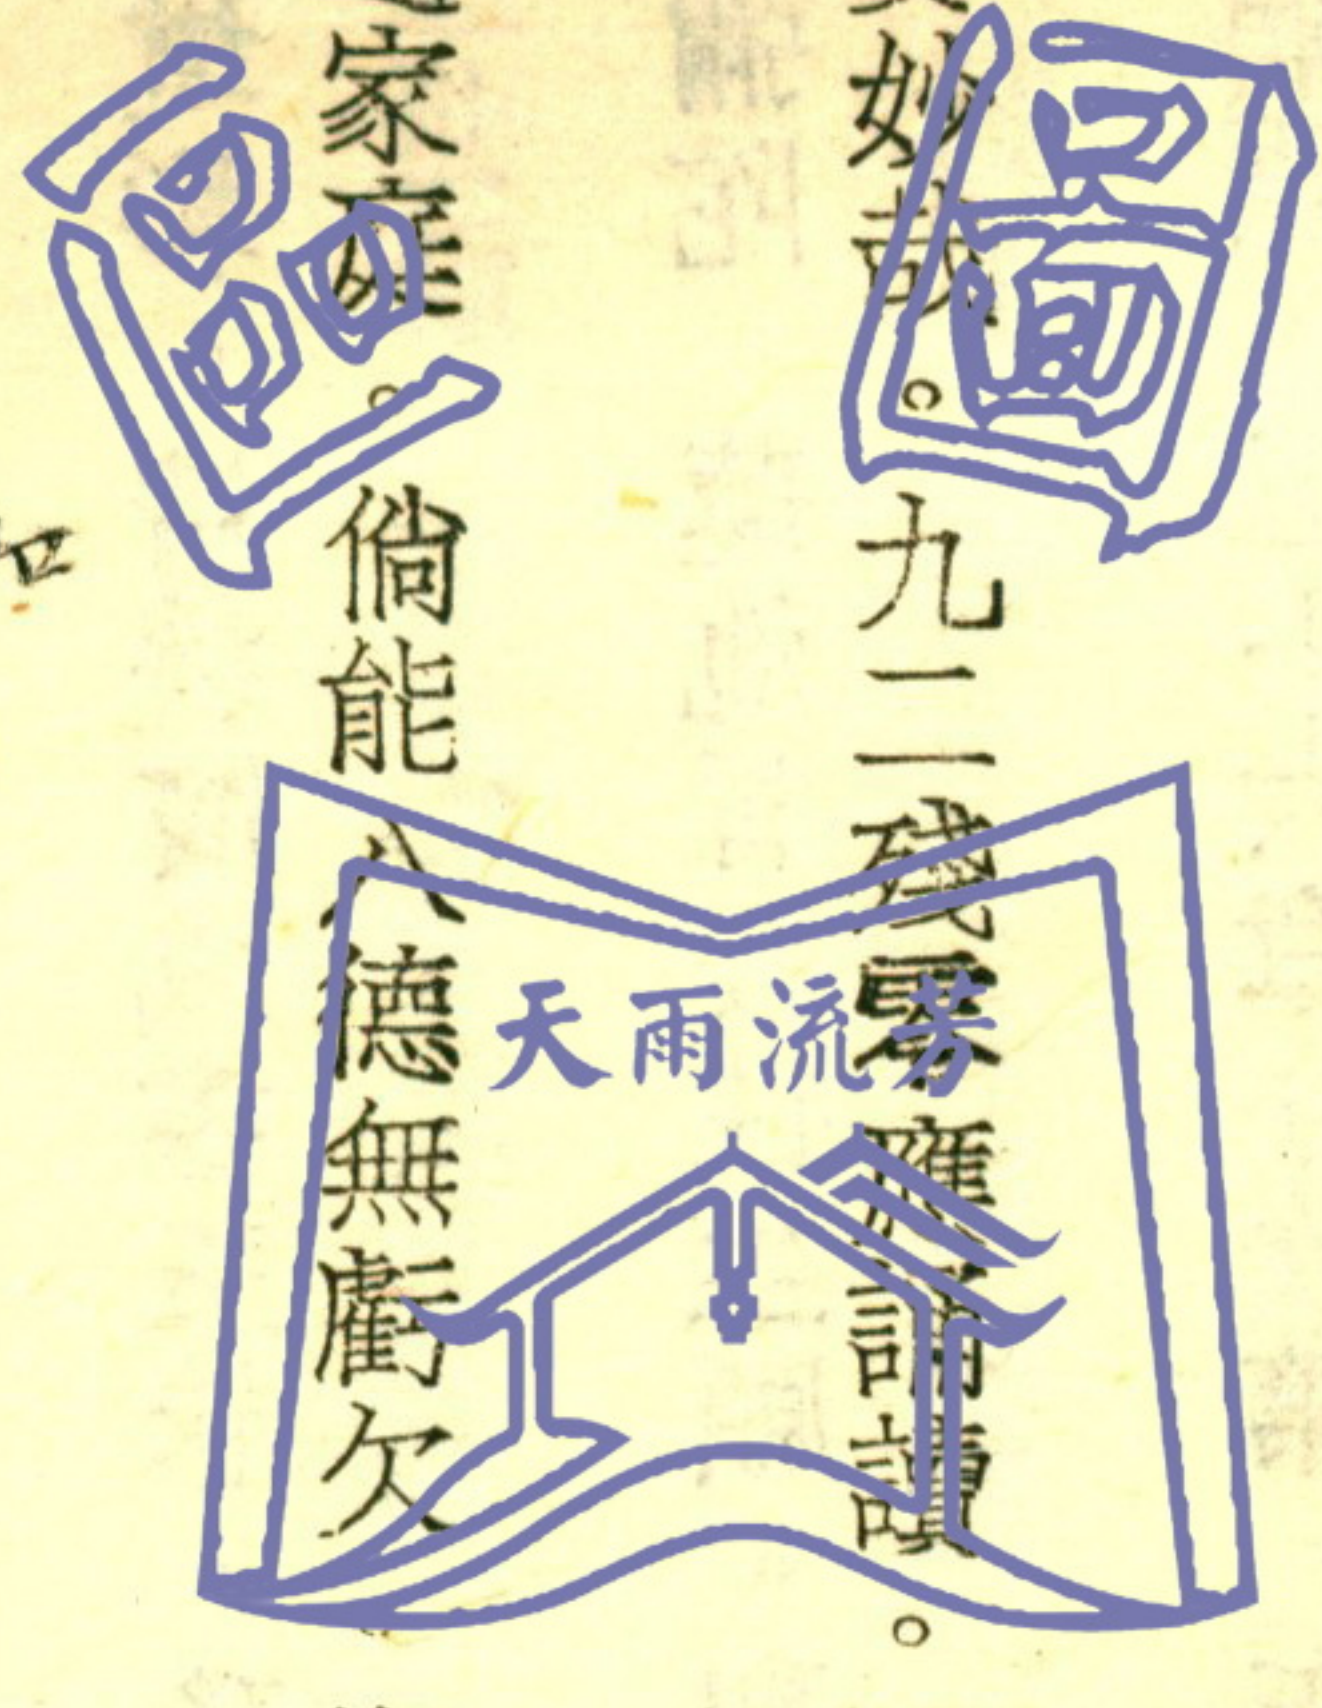 妙哉。九二殘零應誦讀。
家庭。倘能八德無虧欠
天雨流芳
圖
區